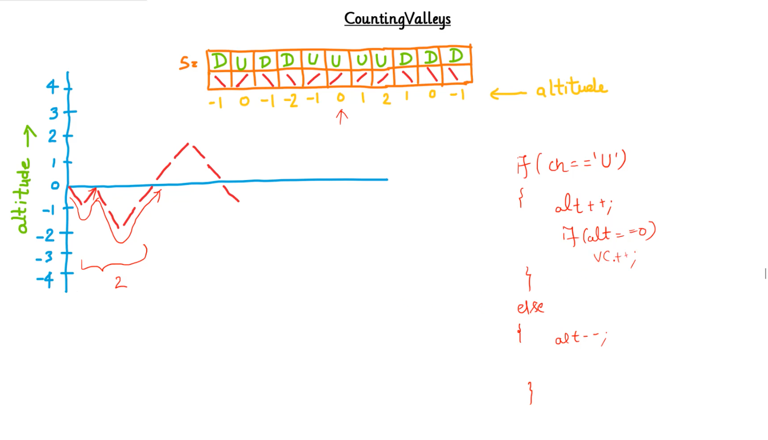 CountingValleys
S= D U D D U U U U D D D
-1 0 -1 -2 -1 0 1 2 1 0 -1 ← altitude
altitude →
4
3
2
1
0
-1
-2
-3
-4
2
if(ch=='U')
{ alt++;
if(alt==0)
vc++;
}
else
{ alt--;
}